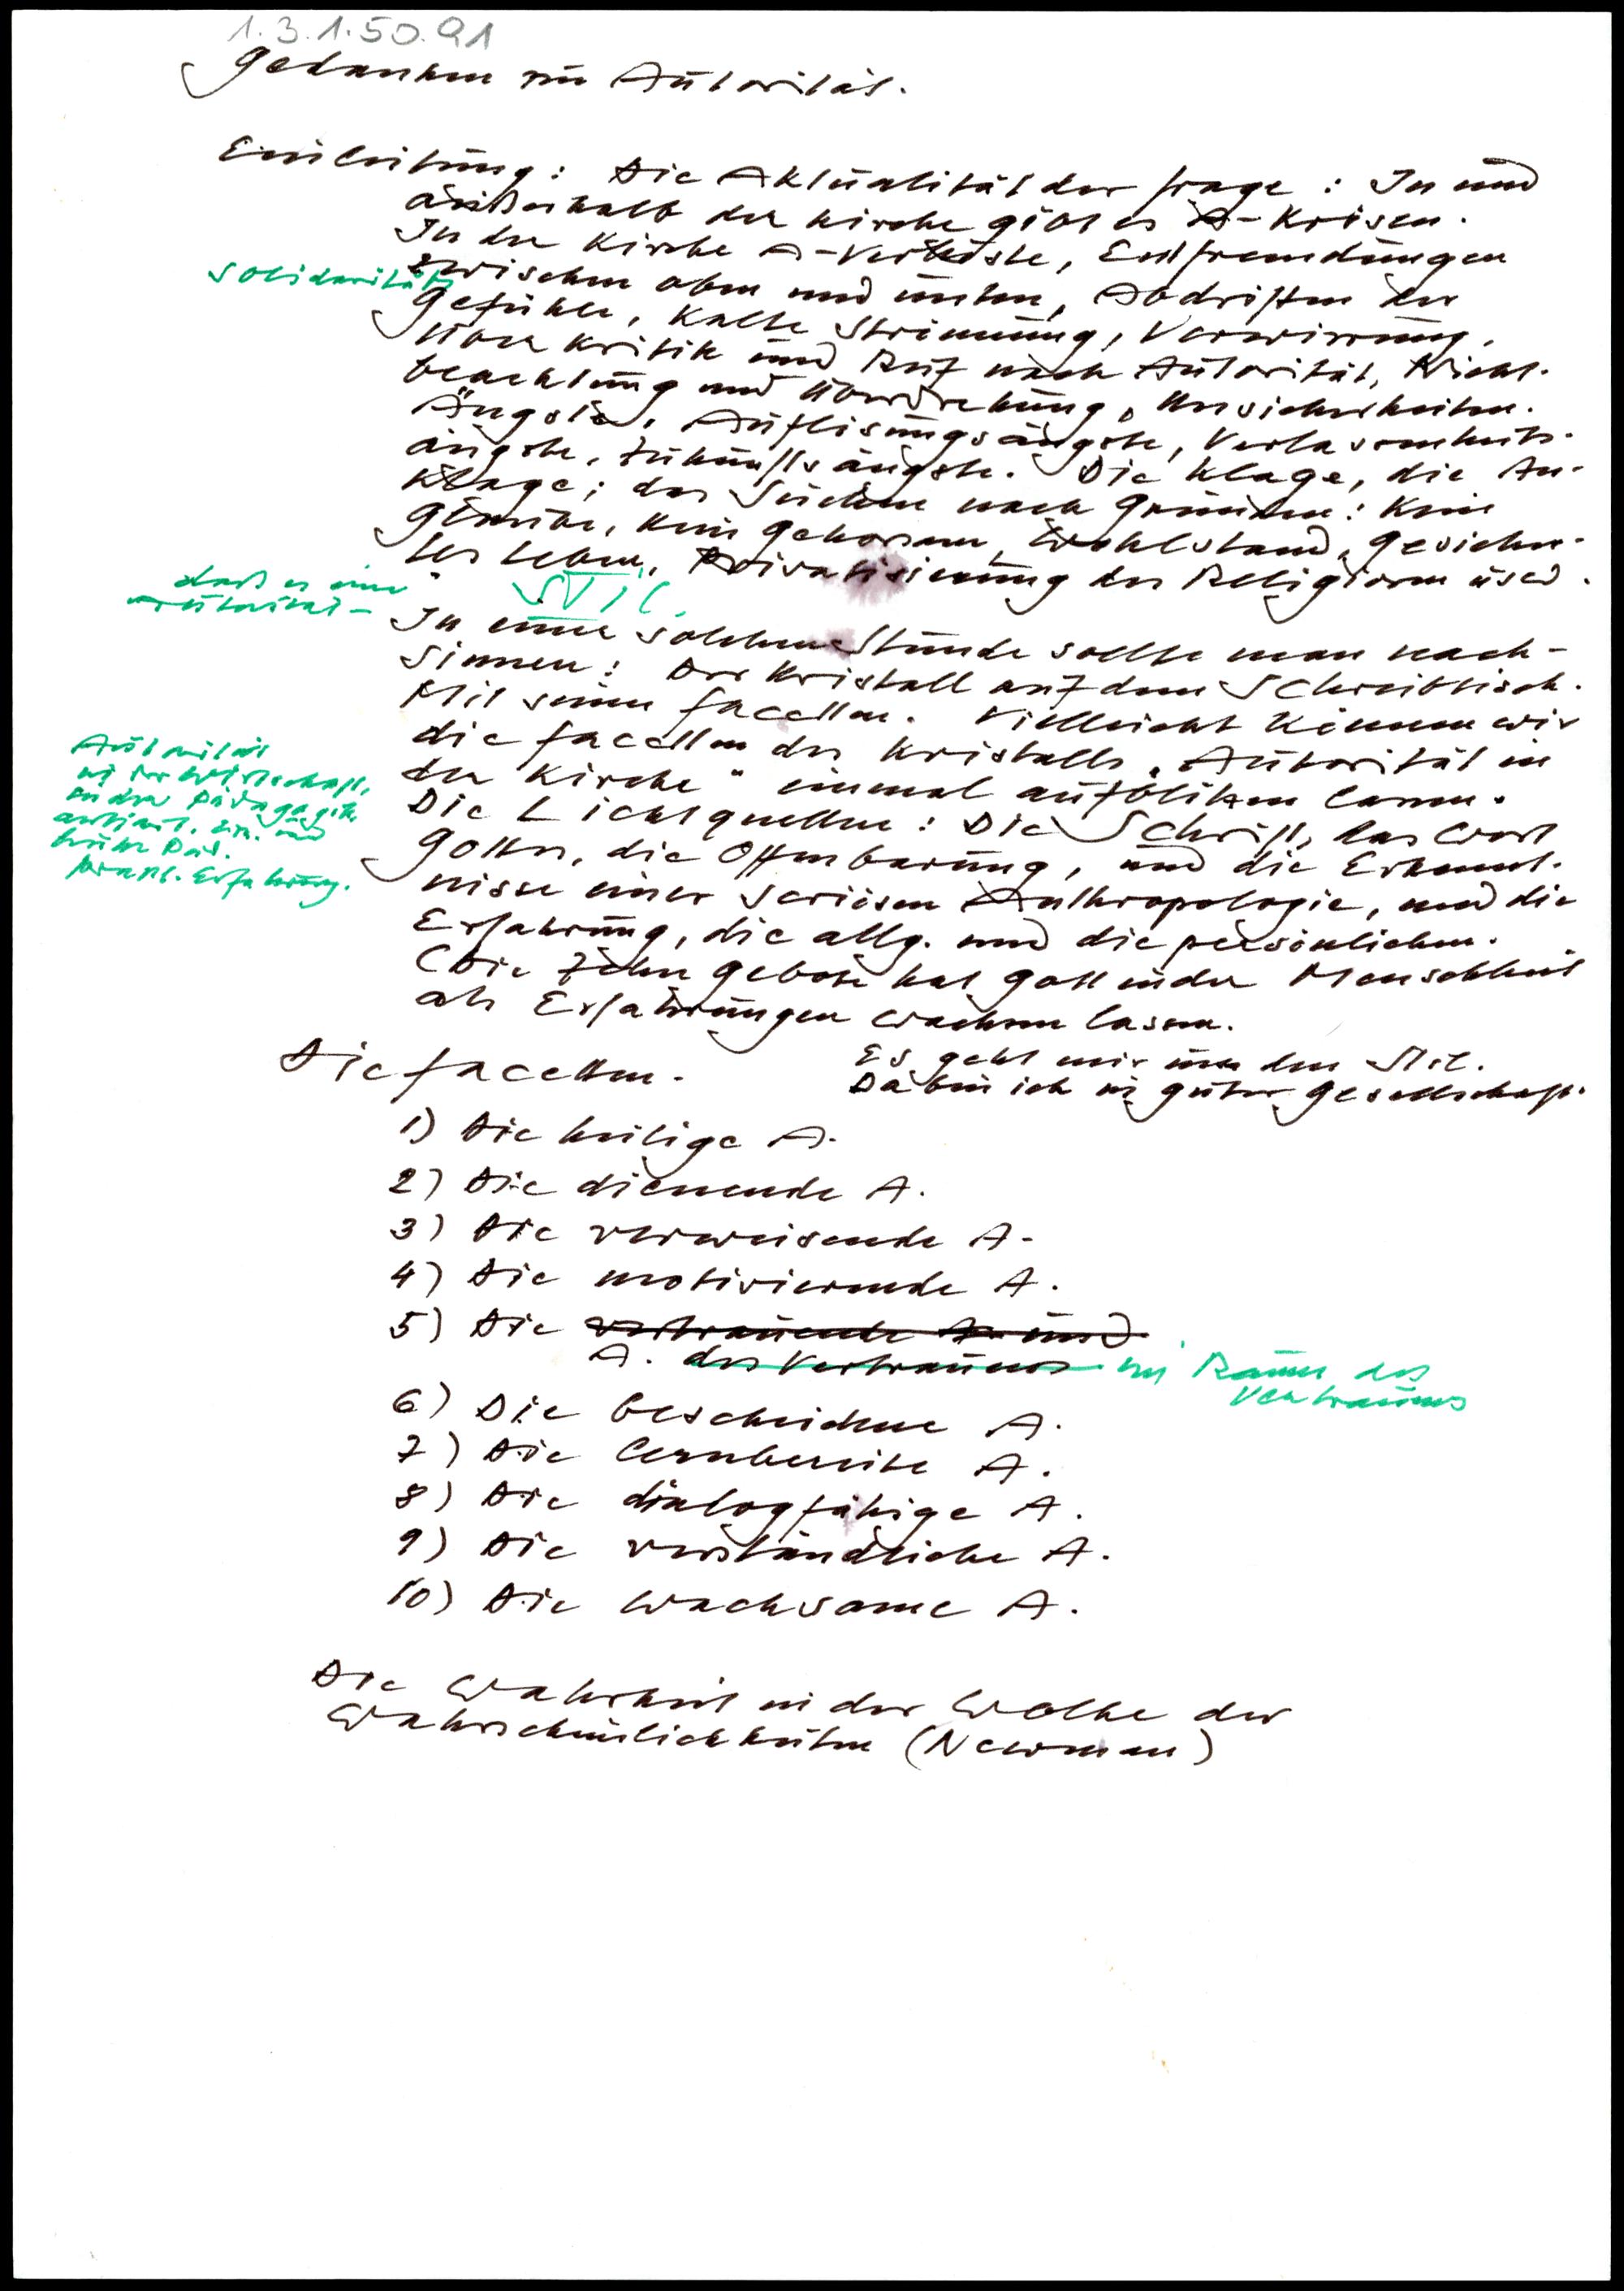 1.3.1.50.91
Gedanken zur Autorität.
Einleitung: Die Aktualität der Frage: In und
außerhalb der Kirche gibt es A-Krisen.
In der Kirche A-Verluste, Entfremdungen
Solidarität
zwischen oben und unten, Abdriften der
Gefühle, kalte Strömung, Verwirrung,
Überkritik und Ruf nach Autorität, Nicht-
beachtung und Überdrehung, Unsicherheiten.
Ängste, Auflösungsängste, Verlassenheits-
ängste, Zukunftsängste. Die Klage, die An-
klage; das Suchen nach Gründen: Kein
Glaube, kein Gehorsam, Wohlstand, gesicher-
tes Leben, Privatisierung des Religiösen usw.
daß es eine
Autorität-
Stil
In einer solchen Stunde sollte man nach-
sinnen: Der Kristall auf dem Schreibtisch.
Mit seinen Facetten. Vielleicht können wir
die Facetten des Kristalls „Autorität in
der Kirche" einmal aufblitzen lassen.
Autorität
in der Wirtschaft,
in der Pädagogik
antiaut. Erz. und
heute Päd.
prakt. Erfahrung.
Die Lichtquellen: Die Schrift, das Wort
Gottes, die Offenbarung, und die Erkennt-
nisse einer seriösen Anthropologie, und die
Erfahrung, die allg. und die persönlichen.
(Die Zehn Gebote hat Gott in der Menschheit
als Erfahrungen wachsen lassen.
Es geht mir um den Stil.
Da bin ich in guter Gesellschaft.
Die Facetten.
1) Die heilige A.
2) Die dienende A.
3) Die verweisende A.
4) Die motivierende A.
5) Die vertrauende A. und
A. des Vertrauens im Raum des
Vertrauens
6) Die bescheidene A.
7) Die lernbereite A.
8) Die dialogfähige A.
9) Die verständliche A.
10) Die wachsame A.
Die Wahrheit in der Wolke der
Wahrscheinlichkeiten (Newman)